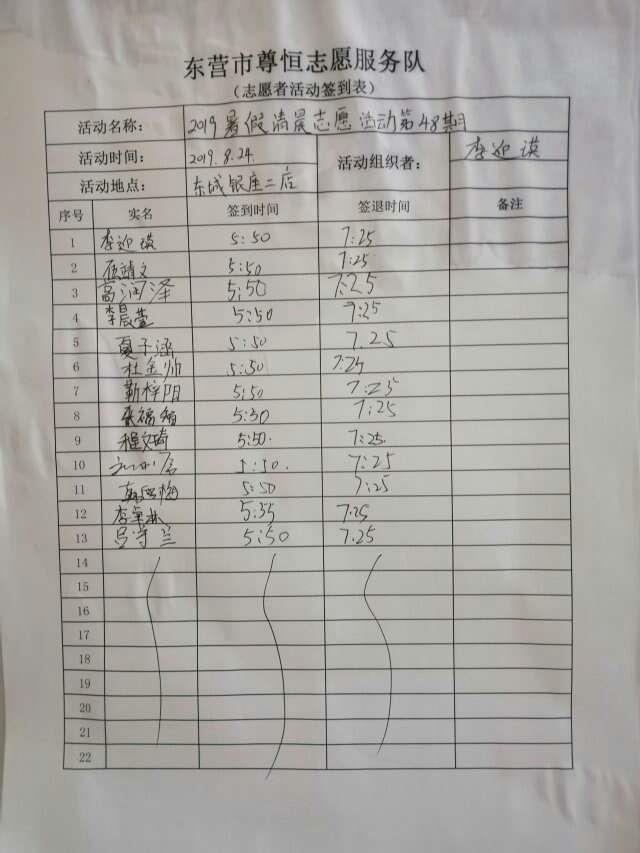 东营市尊恒志愿服务队
（志愿者活动签到表）
活动名称： 2019暑假清晨志愿活动第48期
活动时间： 2019.8.24. 活动组织者： 李迎瑛
活动地点： 东城银座二店
序号 实名 签到时间 签退时间 备注
1 李迎瑛 5:50 7:25
2 5:50 7:25
3 高润泽 5:50 7:25
4 李晨萱 5:50 7:25
5 夏子涵 5:50 7.25
6 杜金帅 5:50 7:25
7 靳梓阳 5:50 7:25
8 5:30 7:25
9 程文琦 5:50. 7:25.
10 5:50. 7:25
11 5:50 7:25
12 5:35 7.25
13 吕守兰 5:50 7.25
14
15
16
17
18
19
20
21
22